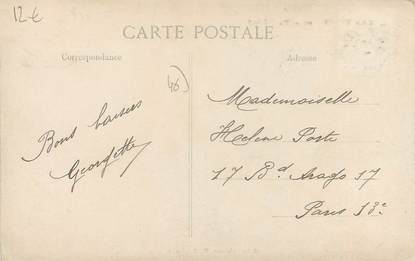 12€
CARTE POSTALE
Correspondance
Adresse
Bons baisers
Georgette
Mademoiselle
Helene Poste
17 Bd Arago 17
Paris 13e